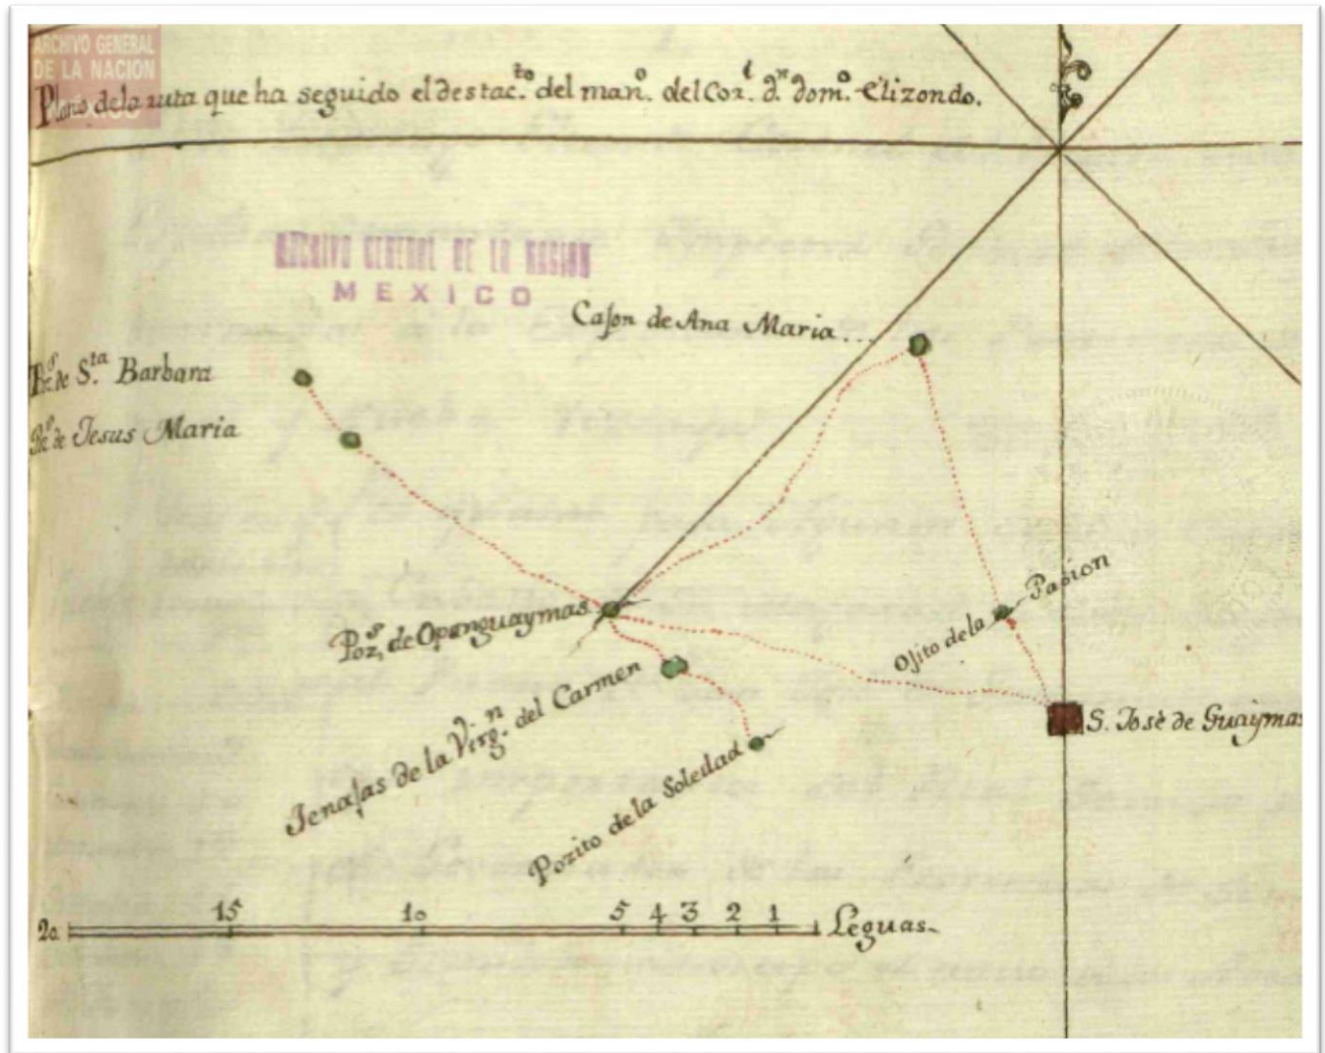 ARCHIVO GENERAL
DE LA NACION
Plano de la ruta que ha seguido el destac.to del man.o del Cor.l d.n dom.o Elizondo.
ARCHIVO GENERAL DE LA NACION
MEXICO
Cajon de Ana Maria...
de S.ta Barbara
de Jesus Maria
Poz.s de Opanguaymas
Ojito de la Pasion
S. Josè de Guaymas
Tenajas de la Virg.n del Carmen
Pozito de la Soledad
20 15 10 5 4 3 2 1 Leguas.